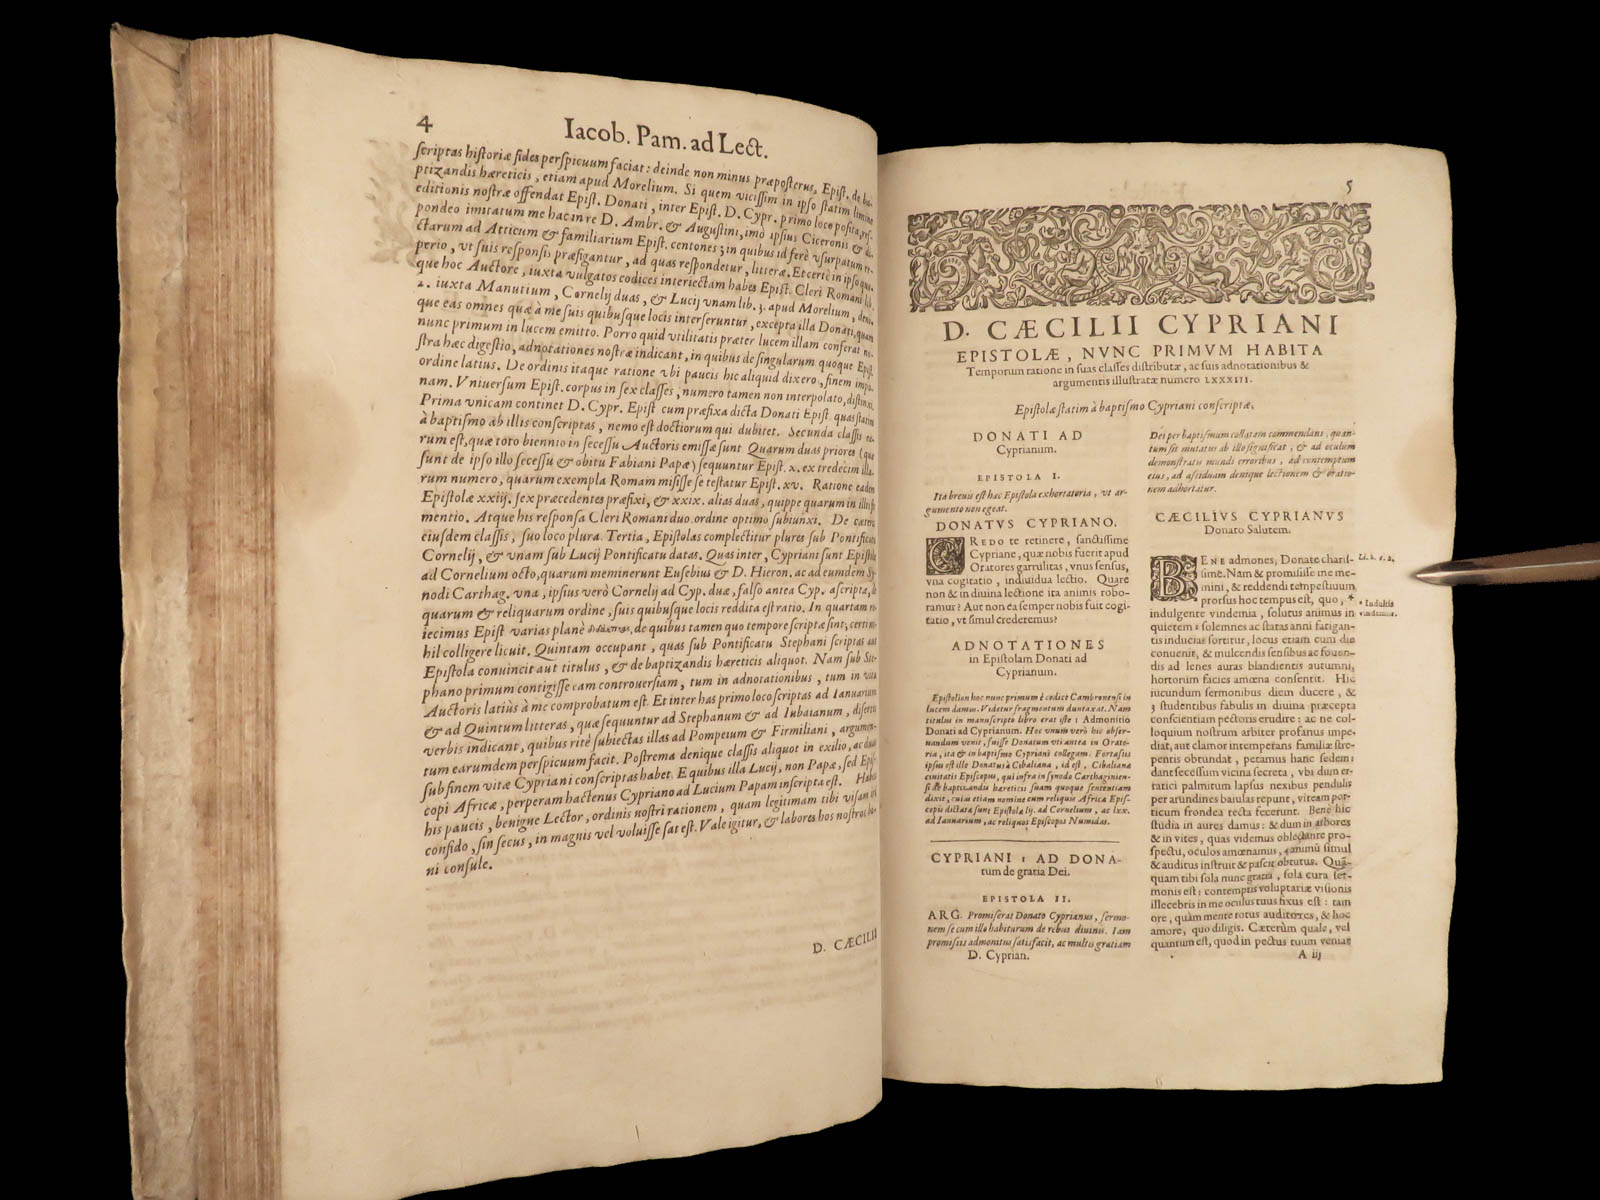 4
Iacob. Pam. ad Lect.
ſcriptas hiſtoriæ fides perſpicuum faciat: deinde non minus præpoſterus, Epiſt. de ba-
ptizandis hæreticis, etiam apud Morelium. Si quem viciſſim in ipſo ſtatim limine
editionis noſtræ offendat Epiſt. Donati, inter Epiſt. D. Cypr. primo loco poſita, reſ-
pondeo imitatum me hac in re D. Ambr. & Auguſtini, imò ipſius Ciceronis & di-
ctarum ad Atticum & familiarium Epiſt. centones; in quibus id ferè vſurpatum re-
perio, vt ſuis reſponſis præfigantur, ad quas reſpondetur, litteræ. Et certè in ipſo quo-
que hoc Auctore, iuxta vulgatos codices interiectam habes Epiſt. Cleri Romani lib.
2. iuxta Manutium, Cornelij duas, & Lucij vnam lib. 3. apud Morelium, deni-
que eas omnes quæ à me ſuis quibuſque locis interſeruntur, excepta illa Donati, quam
nunc primum in lucem emitto. Porro quid vtilitatis præter lucem illam conferat no-
ſtra hæc digeſtio, adnotationes noſtræ indicant, in quibus de ſingularum quoque Epiſt.
ordine latius. De ordinis itaque ratione vbi paucis hic aliquid dixero, finem impo-
nam. Vniuerſum Epiſt. corpus in ſex claſſes, numero tamen non interpolato, diſtinxi.
Prima vnicam continet D. Cypr. Epiſt cum præfixa dicta Donati Epiſt quas ſtatim
à baptiſmo ab illis conſcriptas, nemo eſt doctiorum qui dubitet. Secunda claſſis ea-
rum eſt, quæ toto biennio in ſeceſſu Auctoris emiſſæ ſunt Quarum duas priores (quæ
ſunt de ipſo illo ſeceſſu & obitu Fabiani Papæ) ſequuntur Epiſt. x. ex tredecim illa-
rum numero, quarum exempla Romam miſiſſe ſe teſtatur Epiſt. xv. Ratione eadem
Epiſtolæ xxiij. ſex præcedentes præfixi, & xxix. alias duas, quippe quarum in illis fit
mentio. Atque his reſponſa Cleri Romani duo ordine optimo ſubiunxi. De cæteris
eiuſdem claſſis, ſuo loco plura. Tertia, Epiſtolas complectitur plures ſub Pontificatu
Cornelij, & vnam ſub Lucij Pontificatu datas. Quas inter, Cypriani ſunt Epiſtolæ
ad Cornelium octo, quarum meminerunt Euſebius & D. Hieron. ac ad eumdem Sy-
nodi Carthag. vna, ipſius verò Cornelij ad Cyp. duæ, falſo antea Cyp. aſcriptæ, de
quarum & reliquarum ordine, ſuis quibuſque locis reddita eſt ratio. In quartam re-
iecimus Epiſt varias planè de quibus tamen quo tempore ſcriptæ ſint, certi ni-
hil colligere licuit. Quintam occupant, quas ſub Pontificatu Stephani ſcriptas aut
Epiſtola conuincit aut titulus, & de baptizandis hæreticis aliquot. Nam ſub Ste-
phano primum contigiſſe eam controuerſiam, tum in adnotationibus, tum in vita
Auctoris latiùs à me comprobatum eſt. Et inter has primo loco ſcriptas ad Ianuarium
& ad Quintum litteras, quæ ſequuntur ad Stephanum & ad Iubaianum, diſertis
verbis indicant, quibus ritè ſubiectas illas ad Pompeium & Firmiliani, argumen-
tum earumdem perſpicuum facit. Poſtrema denique claſſis aliquot in exilio, ac dum
ſub finem vitæ Cypriani conſcriptas habet. E quibus illa Lucij, non Papæ, ſed Epiſ-
copi Africæ, perperam hactenus Cypriano ad Lucium Papam inſcripta eſt. Habes
his paucis, benigne Lector, ordinis noſtri rationem, quam legitimam tibi viſam
confido, ſin ſecus, in magnis vel voluiſſe ſat eſt. Vale igitur, & labores hos noſtros bo-
ni conſule.
D. CÆCILII
5
D. CÆCILII CYPRIANI
EPISTOLÆ, NVNC PRIMVM HABITA
Temporum ratione in ſuas claſſes diſtributæ, ac ſuis adnotationibus &
argumentis illuſtratæ numero LXXXIII.
Epiſtolæ ſtatim à baptiſmo Cypriani conſcriptæ.
DONATI AD
Cyprianum.
EPISTOLA I.
Ita breuis eſt hæc Epiſtola exhortatoria, vt ar-
gumento non egeat.
DONATVS CYPRIANO.
CREDO te retinere, ſanctiſſime
Cypriane, quæ nobis fuerit apud
Oratores garrulitas, vnus ſenſus,
vna cogitatio, indiuidua lectio. Quare
non & in diuina lectione ita animis robo-
ramur? Aut non ea ſemper nobis fuit cogi-
tatio, vt ſimul crederemus?
ADNOTATIONES
in Epiſtolam Donati ad
Cyprianum.
Epiſtolion hoc nunc primum è codice Cambronenſi in
lucem damus. Videtur fragmentum duntaxat. Nam
titulus in manuſcripto libro erat iſte: Admonitio
Donati ad Cyprianum. Hoc vnum verò hic obſer-
uandum venit, fuiſſe Donatum vti antea in Orato-
ria, ita & in baptiſmo Cypriani collegam. Fortaſſis
ipſus eſt ille Donatus à Cibaliana, id eſt, Cibalianæ
ciuitatis Epiſcopus, qui infra in ſynodo Carthaginien-
ſi de baptizandis hæreticis ſuam quoque ſententiam
dixit, cuius etiam nomine cum reliquis Africæ Epiſ-
copis dictatæ ſunt Epiſtolæ lij. ad Cornelium, ac lxx.
ad Ianuarium, ac reliquos Epiſcopos Numidas.
CYPRIANI: AD DONA-
tum de gratia Dei.
EPISTOLA II.
ARG. Promiſerat Donato Cyprianus, ſermo-
nem ſe cum illo habiturum de rebus diuinis. Iam
promiſſis admonitus ſatisfacit, ac multis gratiam
D. Cyprian.
Dei per baptiſmum collatam commendans, quan-
tum ſit mutatus ab illo ſignificat, & ad oculum
demonſtratis mundi erroribus, ad contemptum
eius, ad aſsiduam denique lectionem & oratio-
nem adhortatur.
CÆCILIVS CYPRIANVS
Donato Salutem.
BENE admones, Donate chariſ-
ſime. Nam & promiſiſſe me me-
mini, & reddendi tempeſtiuum
prorſus hoc tempus eſt, quo, *
indulgente vindemia, ſolutus animus in
quietem: ſolennes ac ſtatas anni fatigan-
tis inducias ſortitur, locus etiam cum die
conuenit, & mulcendis ſenſibus ac fouen-
dis ad lenes auras blandientis autumni,
hortorum facies amœna conſentit. Hic
iucundum ſermonibus diem ducere, &
ſtudentibus fabulis in diuina præcepta
conſcientiam pectoris erudire: ac ne col-
loquium noſtrum arbiter profanus impe-
diat, aut clamor intemperans familiæ ſtre-
pentis obtundat, petamus hanc ſedem:
dant ſeceſſum vicina ſecreta, vbi dum er-
ratici palmitum lapſus nexibus pendulis
per arundines baiulas repunt, viteam por-
ticum frondea tecta fecerunt. Bene hic
ſtudia in aures damus: & dum in arbores
& in vites, quas videmus oblectante pro-
ſpectu, oculos amœnamus, animũ ſimul
& auditus inſtruit & paſcit obtutus. Quã-
quam tibi ſola nunc gratia, ſola cura ſer-
monis eſt: contemptis voluptariæ viſionis
illecebris in me oculus tuus fixus eſt: tam
ore, quàm mente totus auditores, & hoc
amore, quo diligis. Cæterùm quale, vel
quantum eſt, quod in pectus tuum veniat
A iij
* Indultis
vindemiæ.